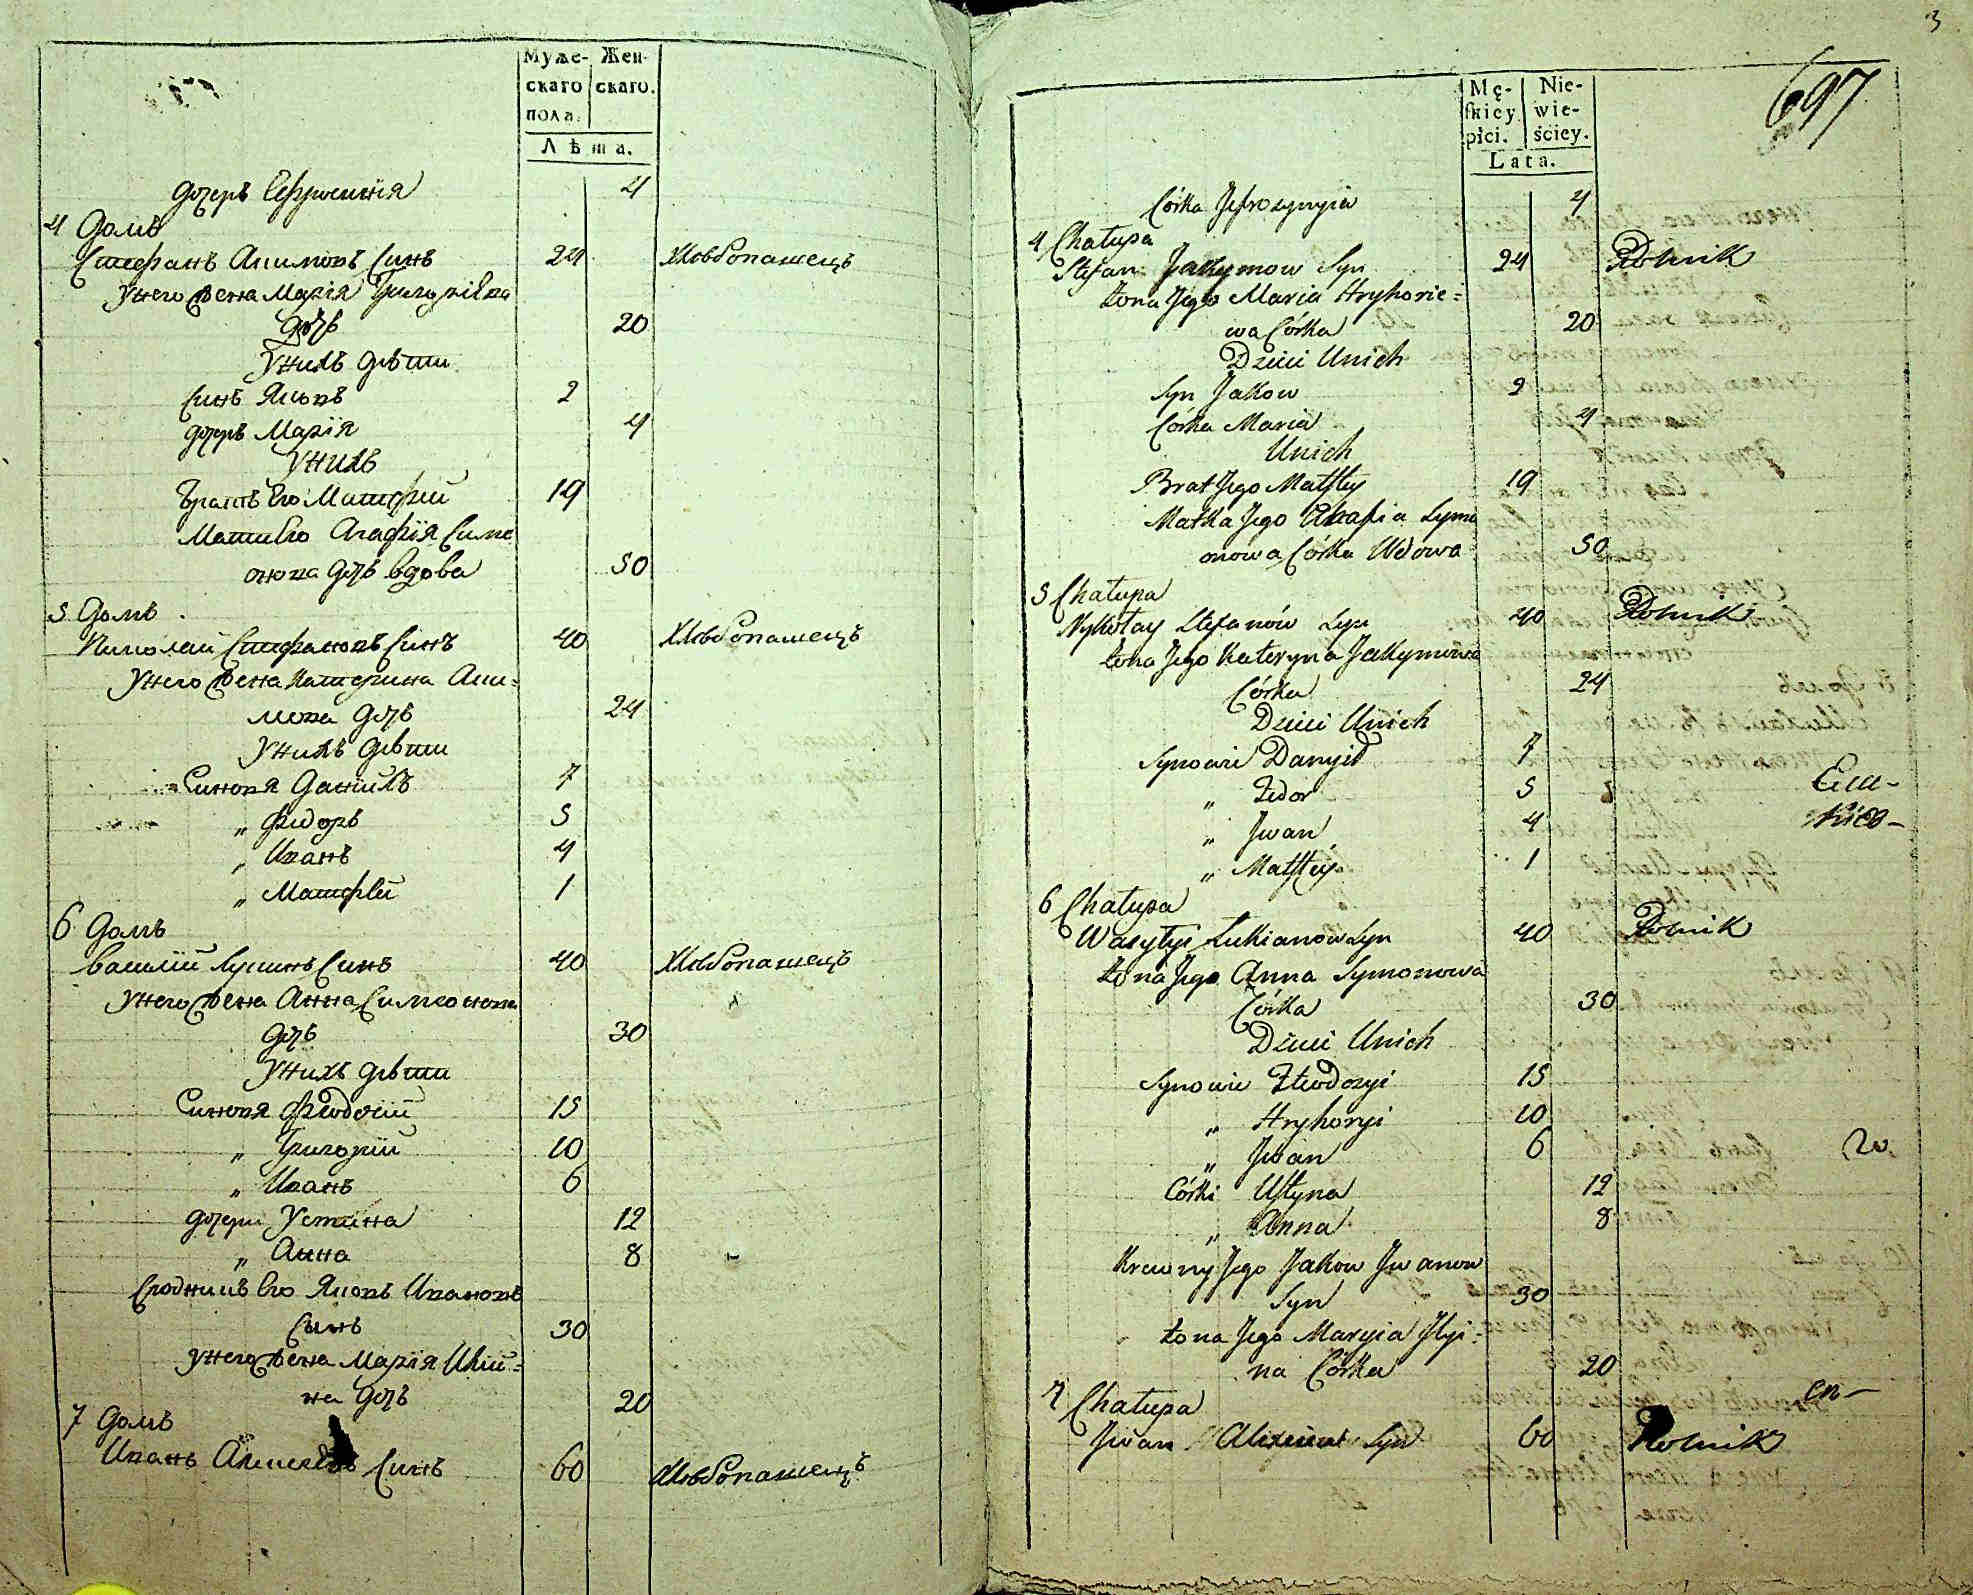 Муже- Жен-
скаго скаго.
пола.
Лѣта.
дочерь Ефросинія 4
4 Домъ
Стефанъ Акимовъ Синъ 24 Хлѣбопашецъ
Унего жена Марія Григоріева
дочъ 20
Унихъ дѣти
Синъ Яковъ 2
дочерь Марія 4
Унихъ
Братъ Его Матфій 19
Мати Его Агафія Симе
онова дочъ вдова 50
5 Домъ
Николай Стефановъ Синъ 40 Хлѣбопашецъ
Унего жена Катерина Аки-
мова дочъ 24
Унихъ дѣти
Синовя Даніилъ 7
„ Фидоръ 5
„ Иванъ 4
„ Матфей 1
6 Домъ
Василій Лукинъ Синъ 40 Хлѣбопашецъ
Унего жена Анна Симеонова
дочъ 30
Унихъ дѣти
Синовя Феодосій 15
„ Григорій 10
„ Иванъ 6
дочери Устина 12
„ Анна 8
Сродникъ Его Яковъ Ивановъ
Сынъ 30
Унего жена Марія Илій-
на дочъ 20
7 Домъ
Иванъ Алексеевъ Синъ 60 Хлѣбопашецъ
3
697
Mę- Nie-
skiey wie-
płci. ściey.
Lata.
Córka Jefrozynyia 4
4 Chałupa
Stefan Jakymow Syn 24 Rolnik
Żona Jego Maria Hryhorie-
wa Córka 20
Dzieci Unich
Syn Jakow 2
Córka Maria 4
Unich
Brat Jego Matftey 19
Matka Jego Ahafia Symi
onowa Córka Wdowa 50
5 Chałupa
Nykołay Stefanów Syn 40 Rolnik
Żona Jego Kateryna Jakymowa
Córka 24
Dzieci Unich
Synowie Danyił 7
„ Fedor 5
„ Jwan 4
„ Matftey 1
6 Chałupa
Wasylyi Łukianow Syn 40 Rolnik
Żona Jego Anna Symonowa
Córka 30
Dzieci Unich
Synowie Fteodozyi 15
„ Hryhoryi 10
„ Jwan 6
Córki Ustyna 12
„ Anna 8
Krewny Jego Jakow Jwanow
Syn 30
Żona Jego Maryia Jlyi-
na Córka 20
7 Chałupa
Jwan Alexieiew Syn 60 Rolnik